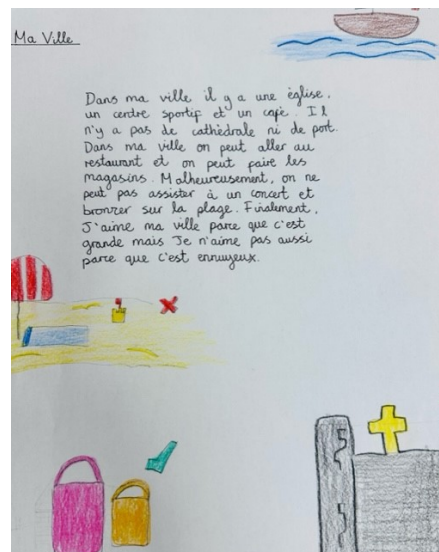 Ma Ville
Dans ma ville il y a une église,
un centre sportif et un café. Il
n'y a pas de cathédrale ni de port.
Dans ma ville on peut aller au
restaurant et on peut faire les
magasins. Malheureusement, on ne
peut pas assister à un concert et
bronzer sur la plage. Finalement,
J'aime ma ville parce que c'est
grande mais Je n'aime pas aussi
parce que c'est ennuyeux.